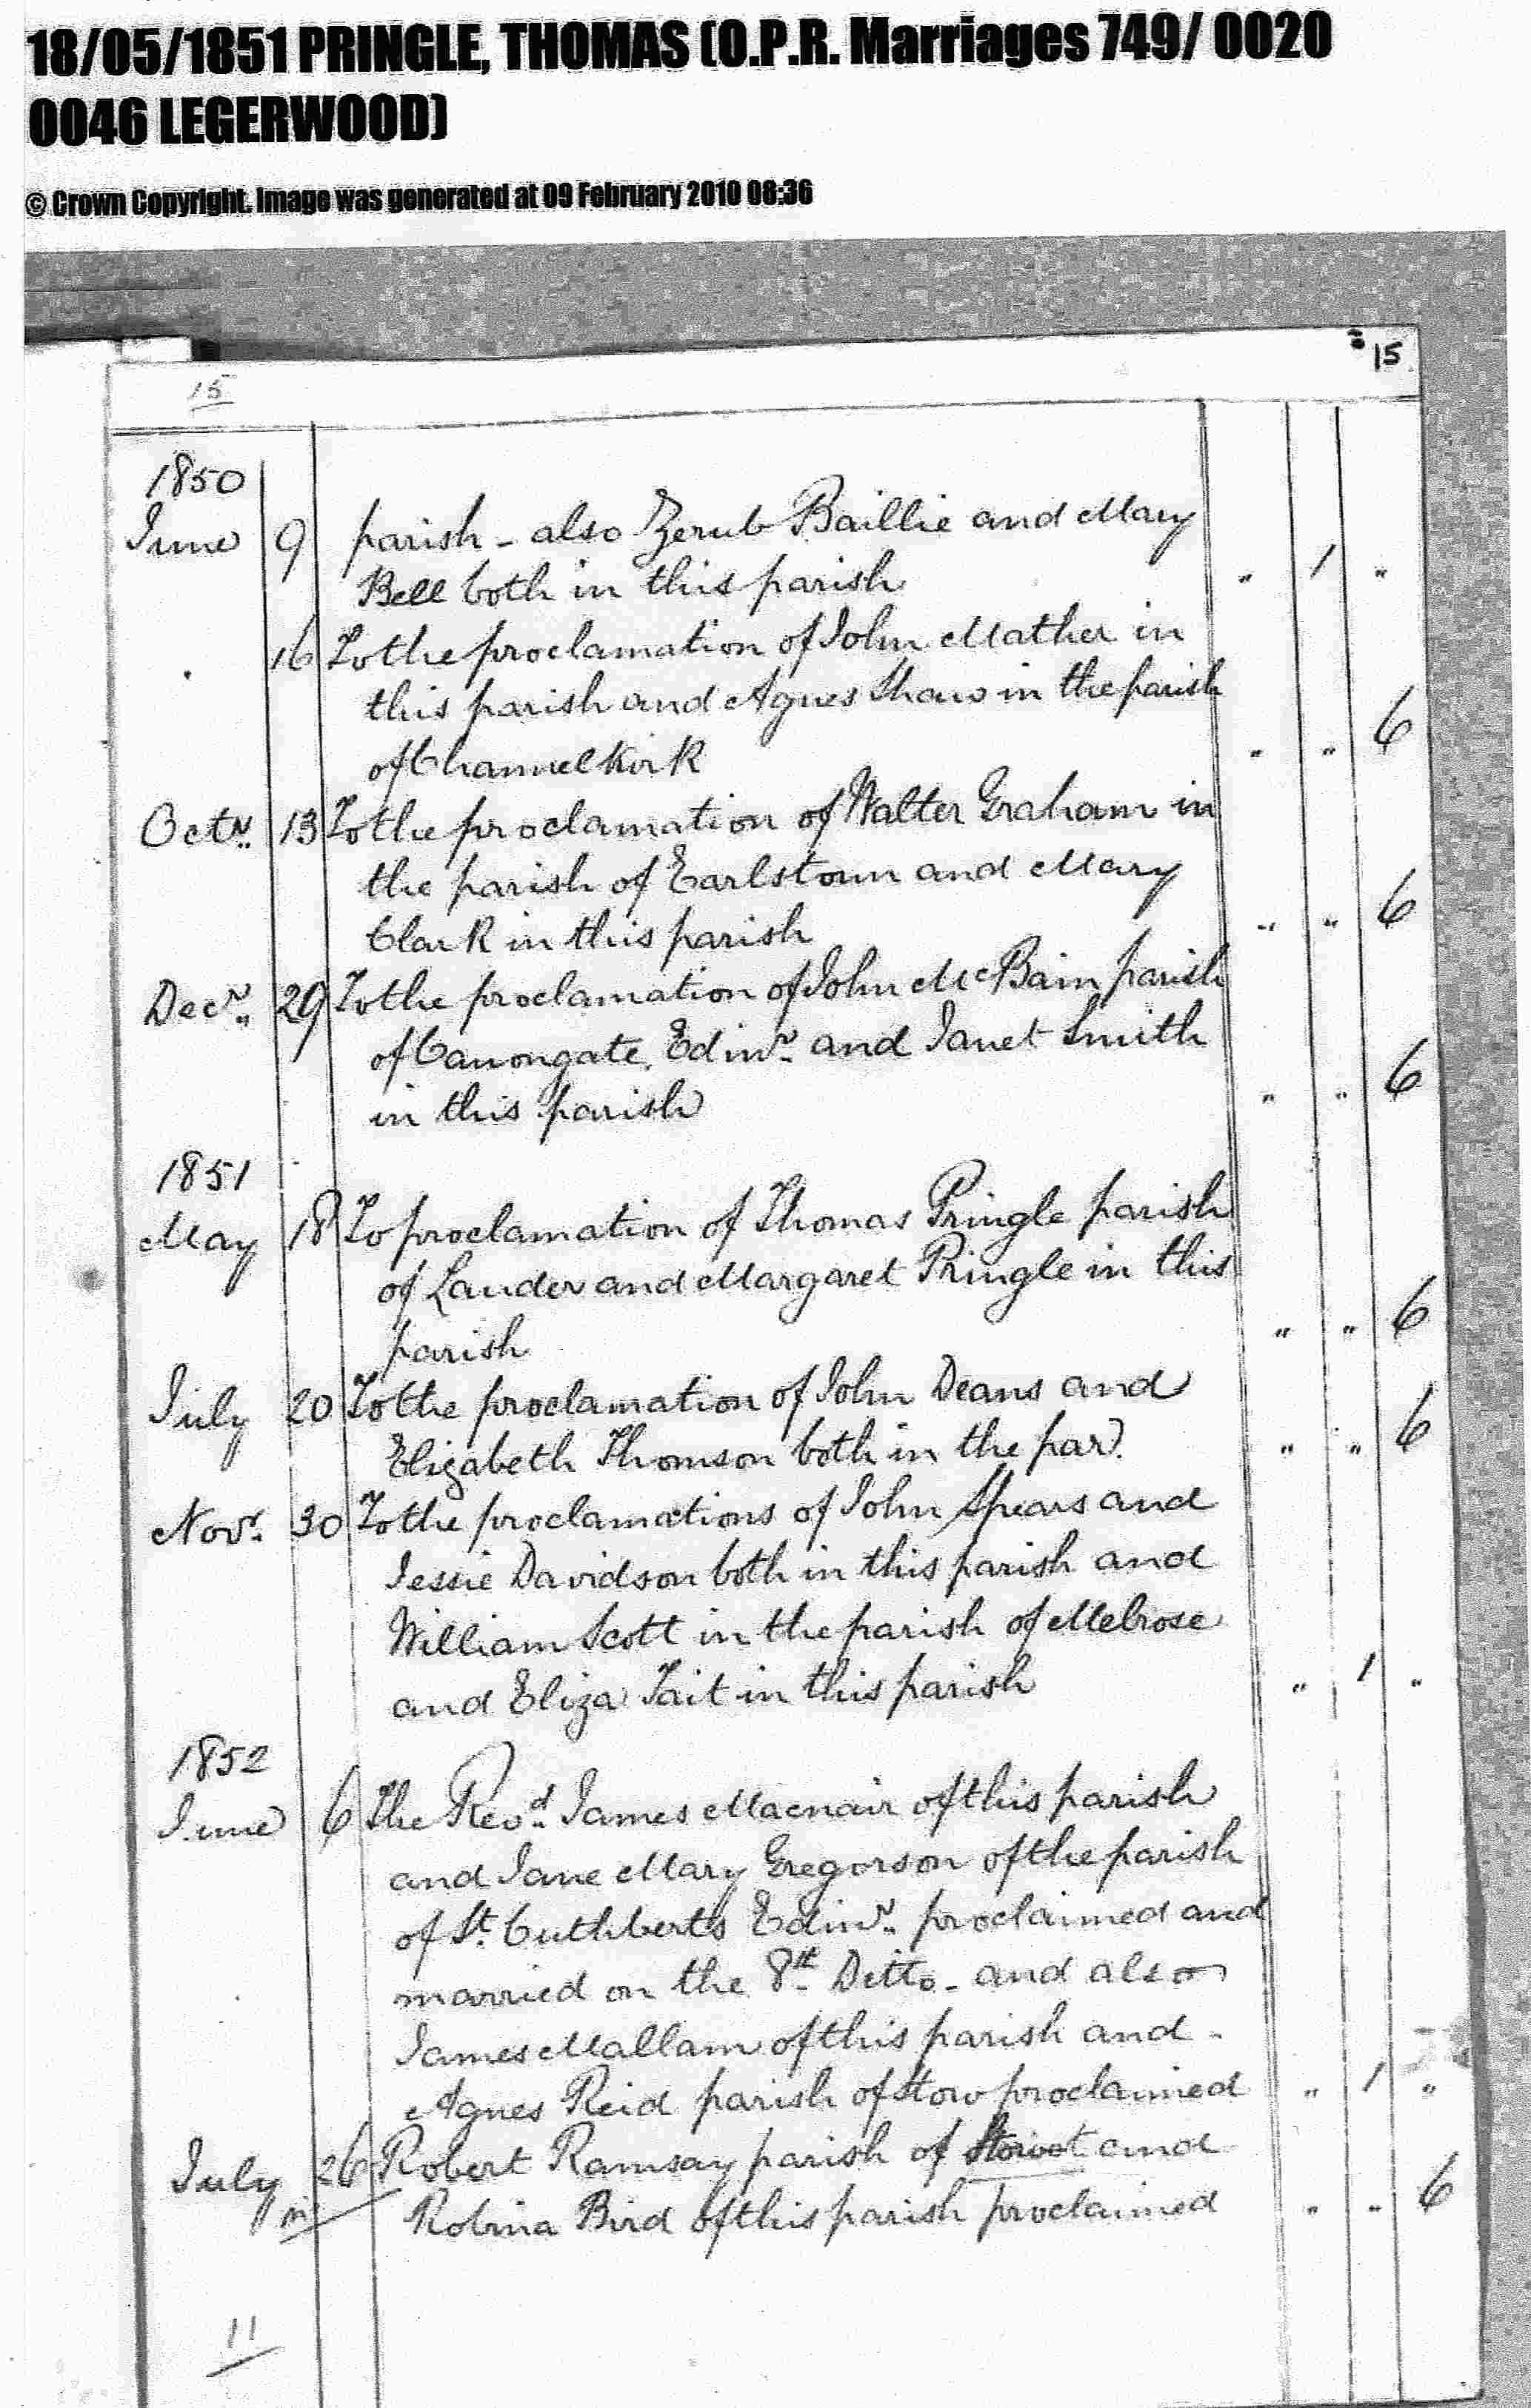 18/05/1851 PRINGLE, THOMAS (O.P.R. Marriages 749/ 0020
0046 LEGERWOOD)
© Crown Copyright. Image was generated at 09 February 2010 08:36
15
15
1850
June 9 parish - also Zerub Baillie and Mary
Bell both in this parish " 1 "
16 To the proclamation of John Mather in
this parish and Agnes Shaw in the parish
of Channelkirk " " 6
Octr. 13 To the proclamation of Walter Graham in
the parish of Earlstoun and Mary
Clark in this parish " " 6
Decr. 29 To the proclamation of John McBain parish
of Canongate, Edinr. and Janet Smith
in this parish " " 6
1851
May 18 To proclamation of Thomas Pringle parish
of Lauder and Margaret Pringle in this
parish " " 6
July 20 To the proclamation of John Deans and
Elizabeth Thomson both in the par. " " 6
Novr. 30 To the proclamations of John Spears and
Jessie Davidson both in this parish and
William Scott in the parish of Melrose
and Eliza Tait in this parish " 1 "
1852
June 6 The Revd. James Macnair of this parish
and Jane Mary Gregorson of the parish
of St. Cuthberts Edinr. proclaimed and
married on the 8th Ditto - and also
James Mallam of this parish and -
Agnes Reid parish of Stow proclaimed " 1 "
July 26 Robert Ramsay parish of and
Robina Bird of this parish proclaimed " " 6
11